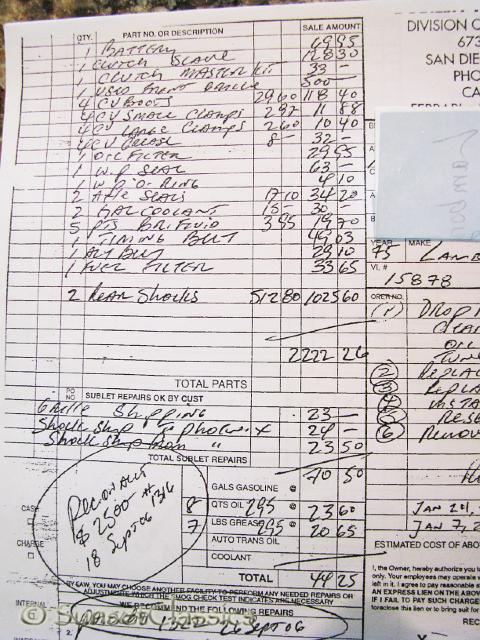 QTY. PART NO. OR DESCRIPTION SALE AMOUNT
1 BATTERY 69 95
1 CLUTCH SLAVE 128 30
1 CLUTCH MASTER KIT 33 -
1 USED FRONT GRILLE 500 -
4 CV BOOTS 29 60 118 40
4 CV SMALL CLAMPS 2 97 11 88
4 CV LARGE CLAMPS 2 60 10 40
4 CV GREASE 8 - 32 -
1 OIL FILTER 29 95
1 W.P SEAL 63 -
1 W.P. O-RING 4 10
2 AXLE SEALS 17 10 34 20
2 GAL COOLANT 15 - 30 -
5 PTS BR. FLUID 3 95 19 70
1 TIMING BELT 49 03
1 ALT BELT 29 10
1 FUEL FILTER 33 65
2 REAR SHOCKS 512 80 1025 60
2222 26
TOTAL PARTS
PO NO SUBLET REPAIRS OK BY CUST
Grille Shipping 23 -
Shock Ship To 24 -
Shock Ship from " 23 50
TOTAL SUBLET REPAIRS 70 50
RECON ACCT
$2500 # 1316
18 Sept 06
CASH
CHARGE
INTERNAL
GALS GASOLINE @
8 QTS OIL @ 2 95 23 60
7 LBS GREASE @ 2 95 20 65
AUTO TRANS OIL
COOLANT
TOTAL 44 25
BY LAW, YOU MAY CHOOSE ANOTHER FACILITY TO PERFORM ANY NEEDED REPAIRS OR
ADJUSTMENTS WHICH THE SMOG CHECK TEST INDICATES ARE NECESSARY
WE RECOMMEND THE FOLLOWING REPAIRS
Sept 06
2.
DIVISION O
673
SAN DIE
PHO
CA
YEAR MAKE
75 LAMB
V.I. #
15878
ORER NO.
(1) DROP
OIL
TUN
(2) REPLAC
(3) REPLA
(4) INSTA
(5) RESE
(6) REMOV
JAN 20,
JAN 7, 2
ESTIMATED COST OF ABO
I, the Owner, hereby authorize you to
only. Your employees may operate
left in it. I agree to pay reasonable
AN EXPRESS LIEN ON THE ABOVE
IF I FAIL TO PAY SUCH CHARGE
foreclose this lien or to bring suit for